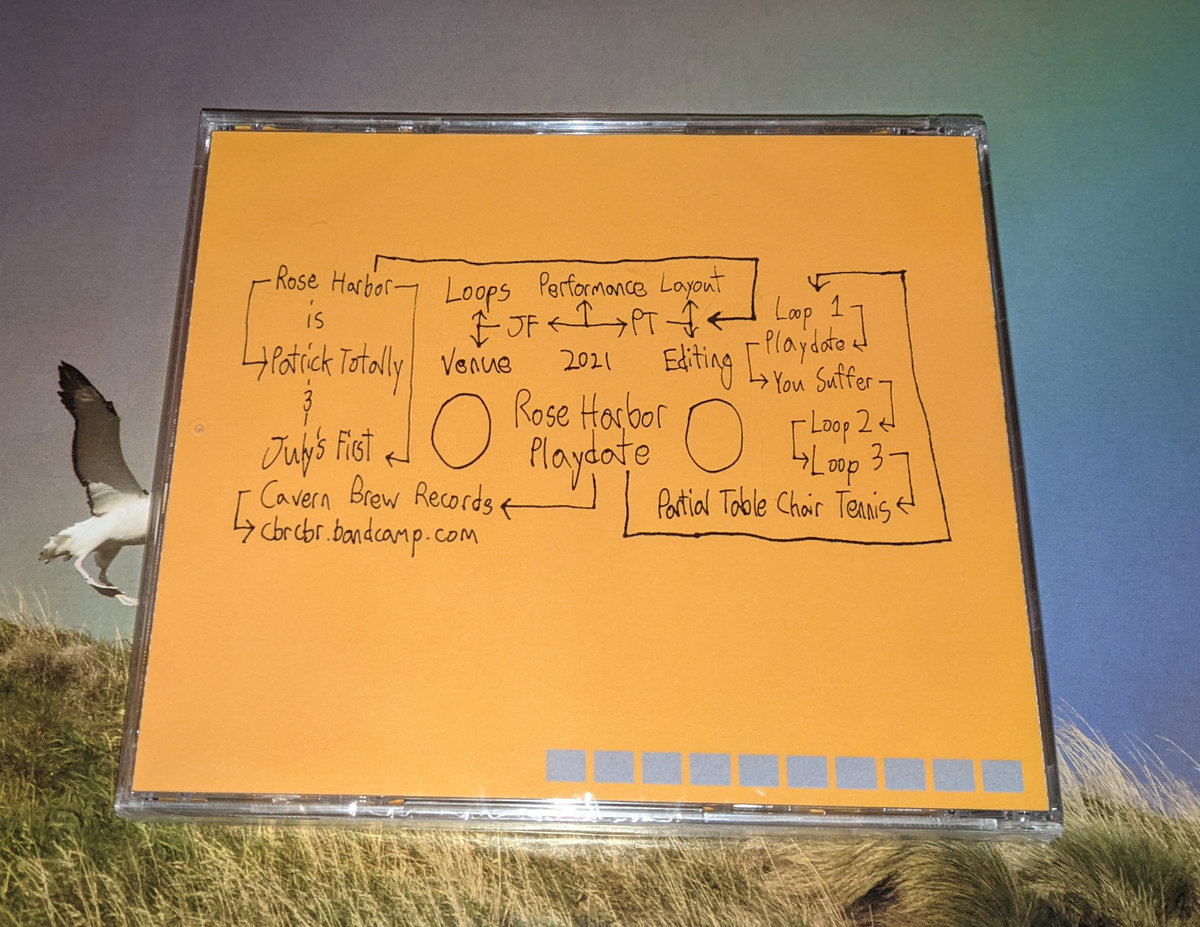 Rose Harbor
is
Patrick Totally
&
July's First
Cavern Brew Records
cbrcbr.bandcamp.com
Loops Performance Layout
JF PT
Venue 2021 Editing
Rose Harbor
Playdate
Loop 1
Playdate
You Suffer
Loop 2
Loop 3
Partial Table Chair Tennis